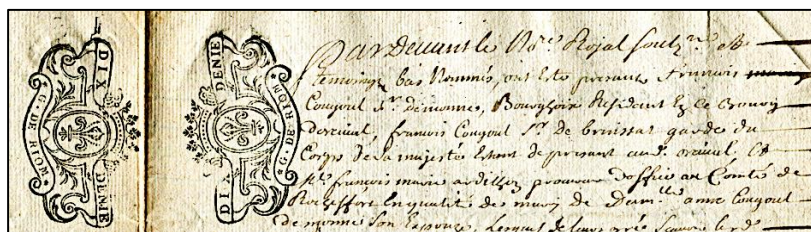 G. DE RIOM DIX DENIE
G. DE RIOM DIX DENIE
Pardevant le No.re Royal souz.né et
temoings bas Nommés, ont esté presants francois
Cougoul s.r demonnes, Bourghois Résident En ce Bourg
dorcival, francois Cougoul s.r de brinssat gardes du
Corps de sa majesté Etant de present aud. orcival. Et
francois marie ardillon procureur doffice au Comté de
Rocheffort En qualité de mary de Dam.lle anne Cougoul
demonne Son Espouze,